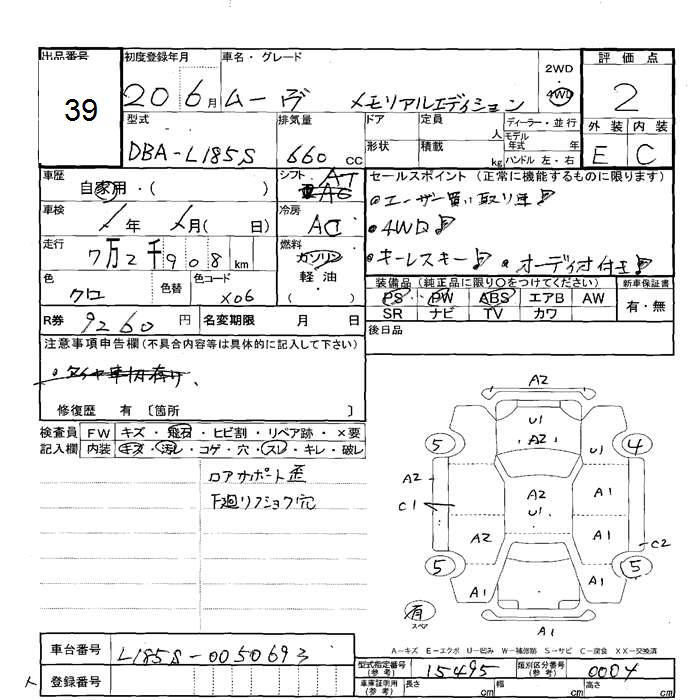 出品番号 初度登録年月 車名・グレード 2WD 4WD 評価点
39 20 6月 ムーヴ メモリアルエディション 2
型式 排気量 ドア 定員 人 ディーラー・並行 外装 内装
DBA-L185S 660 CC 形状 積載 kg モデル年式 年 ハンドル 左・右 E C
車歴 自家用・( ) シフト AT セールスポイント (正常に機能するものに限ります)
車検 年 月( 日) 冷房 AC
・ユーザー買い取り車
・4WD
走行 7万2千908km 燃料 ガソリン 軽油 ( )
・キーレスキー ・オーディオ付
色 クロ 色替 色コード X06
装備品 (純正品に限り○をつけてください) 新車保証書
PS PW ABS エアB AW 有・無
SR ナビ TV カワ
R券 9260円 名変期限 月 日 後日品
注意事項申告欄(不具合内容等は具体的に記入して下さい)
修復歴 有 〔箇所 〕
検査員 FW キズ・飛石・ヒビ割・リペア跡・×要
記入欄 内装 キズ・汚レ・コゲ・穴・スレ・キレ・破レ
ロアサポート歪
下廻リフショク穴
A2
U1
A2
5 U1 4
A2
C1
A2
U1
A1
A2 A1
C2
5 5
A1 A1
有
スペア
A1
A-キズ E-エクボ U-凹み W-補修跡 S-サビ C-腐食 XX-交換済
車台番号 L185S-0050693
型式指定番号(参考) 15495 類別区分番号(参考) 0004
登録番号
車庫証明用(参考) 長さ cm 幅 cm 高さ cm